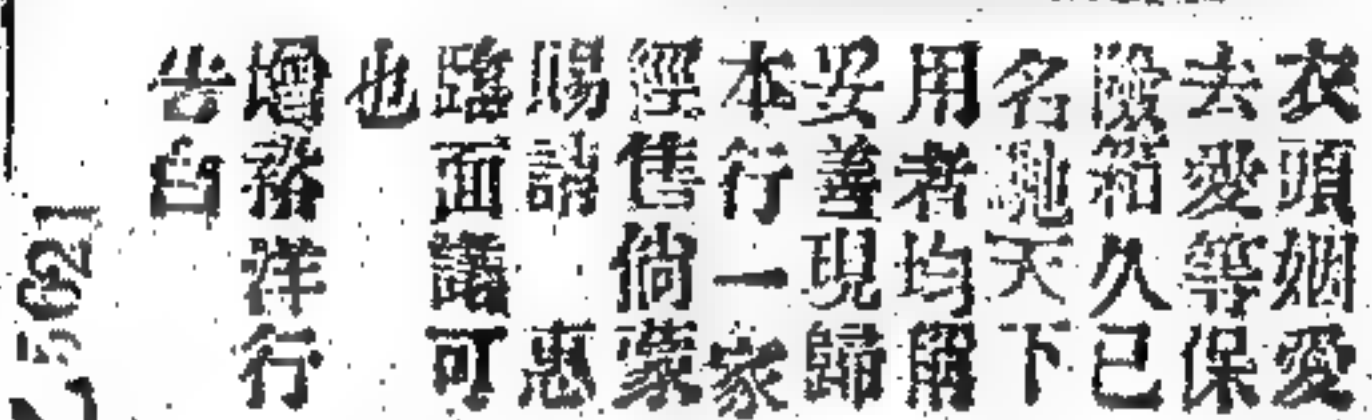 衣頭姻愛
去愛等保
險箱久已
名馳天下
用者均稱
妥善現歸
本行一家
經售倘蒙
賜請　惠
臨面議可
也
增裕洋行
告白
25621